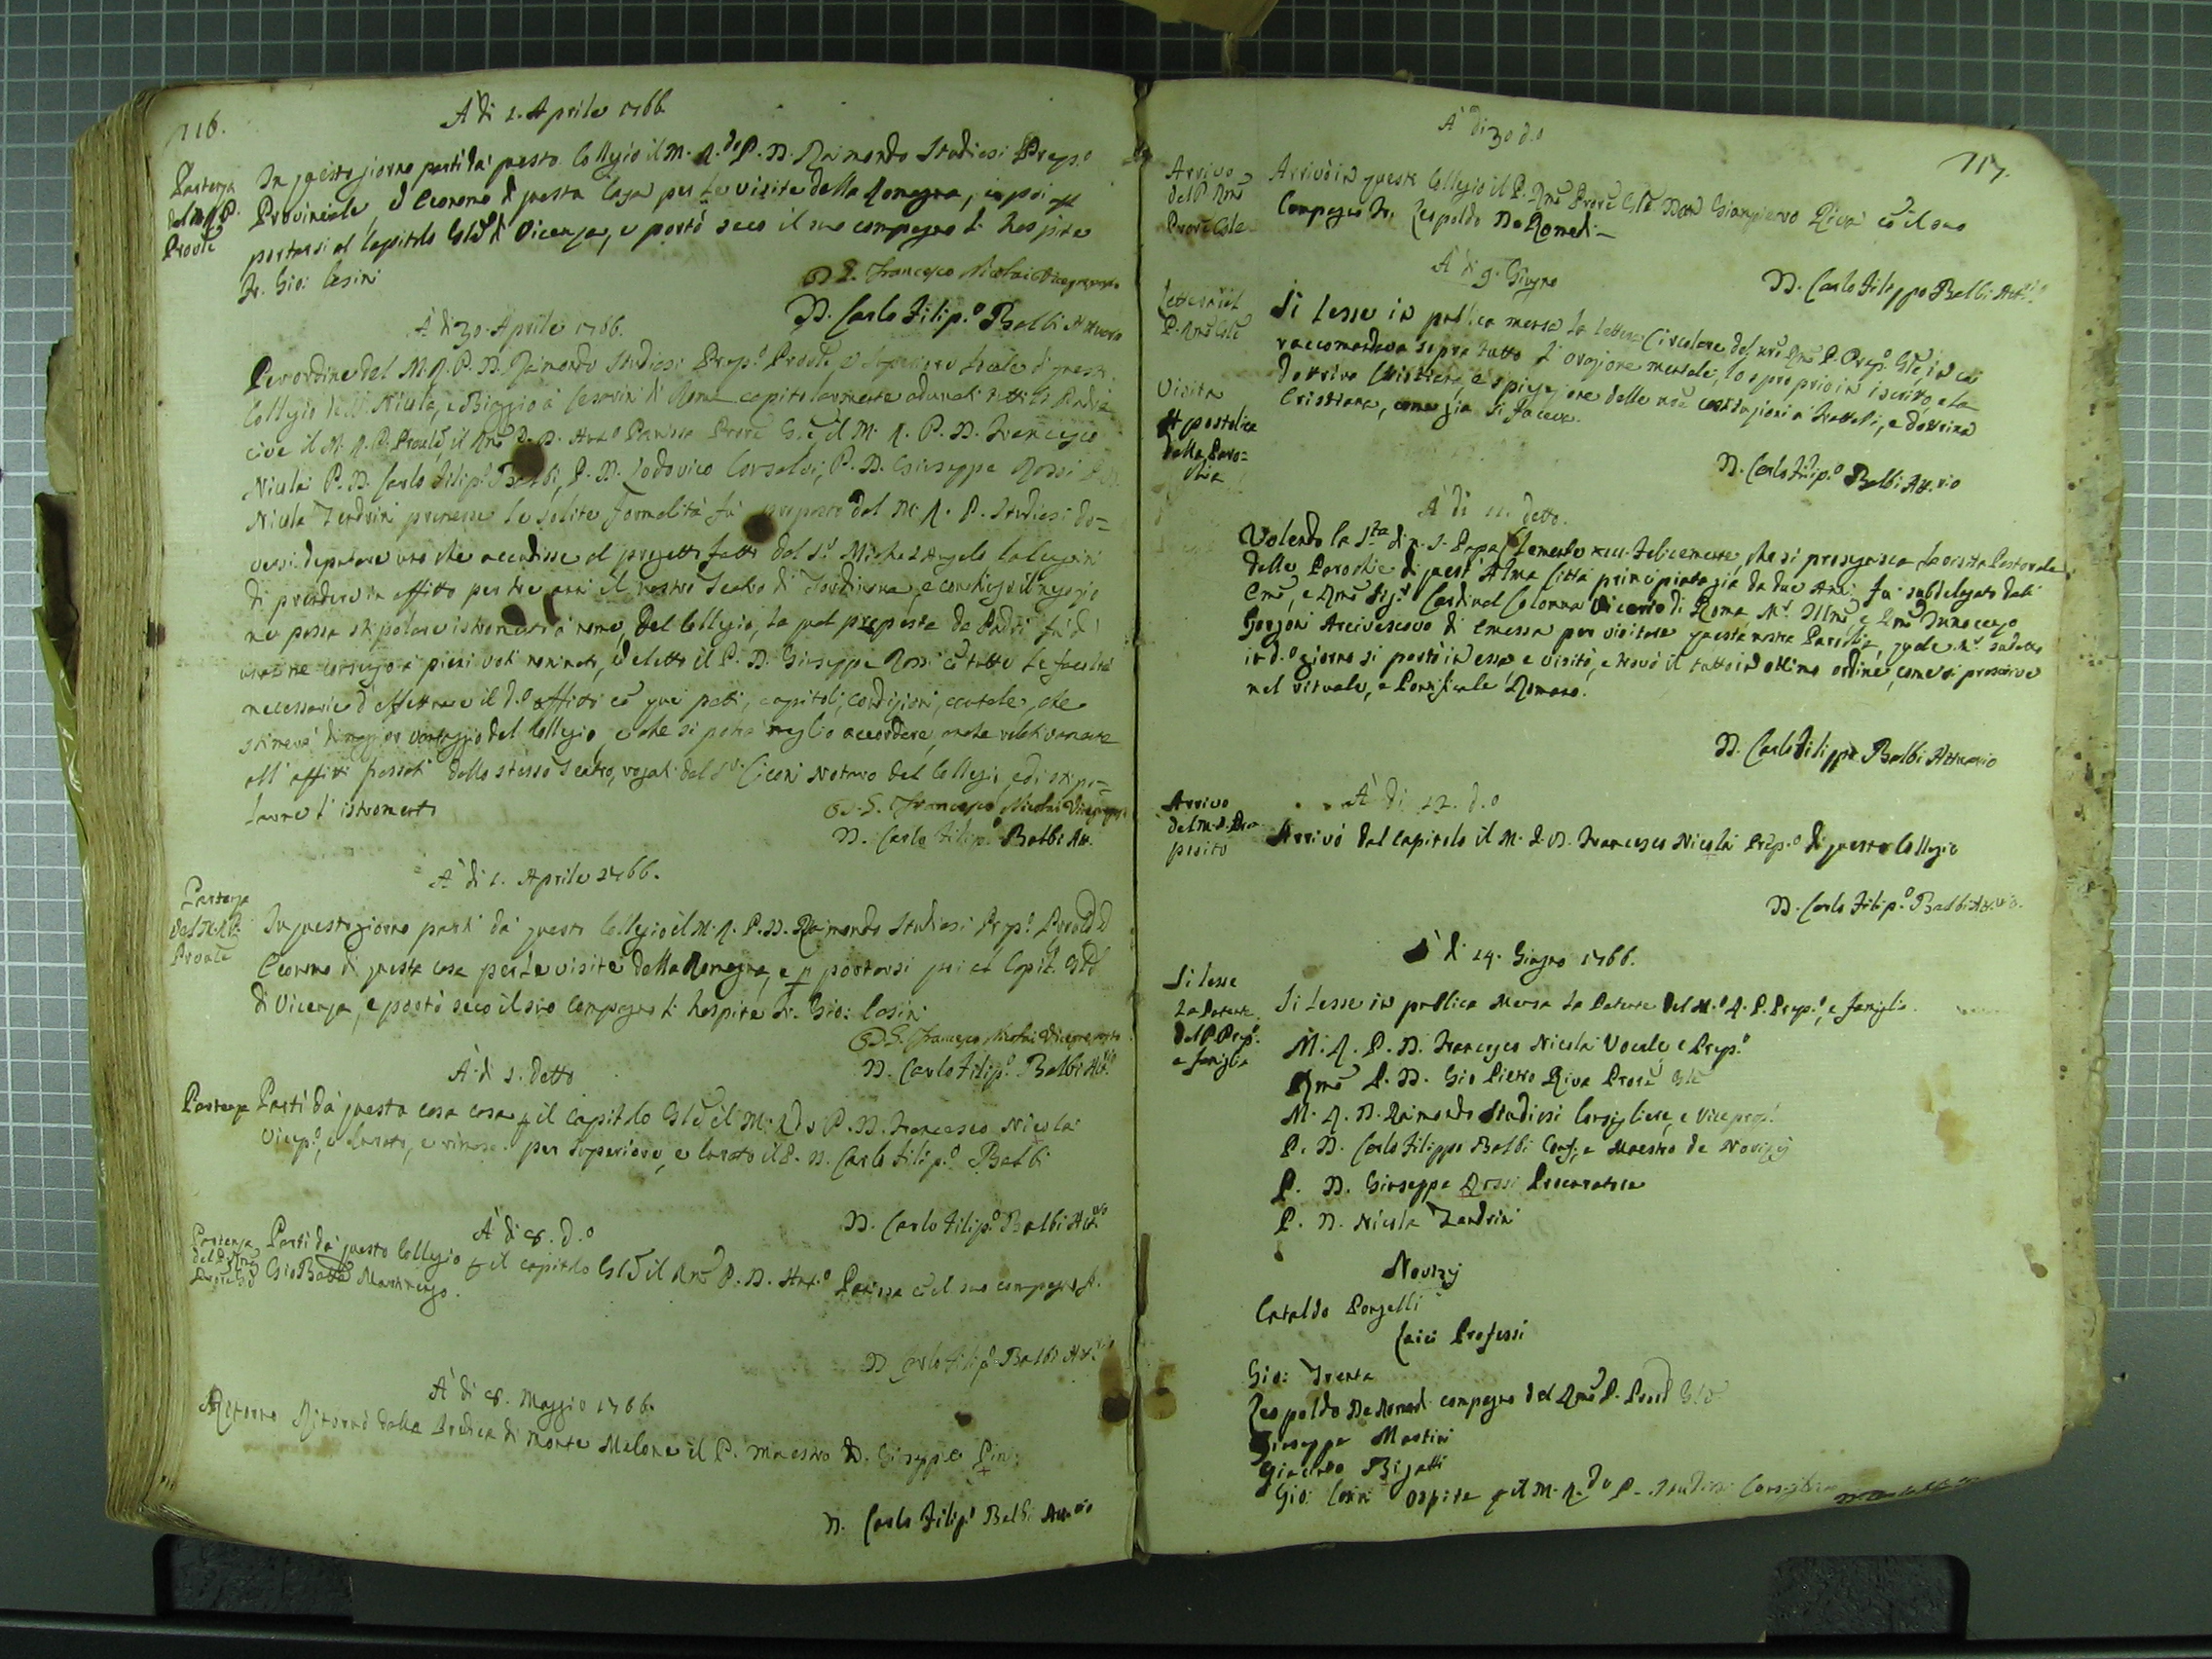 116.
A di 1. Aprile 1766
Partenza
del M. R. P.
Proũle
In questo giorno partì da questo Collegio il M. R.do P. D. Raimondo Studiosi Prep.o
Provinciale, ed Economo di questa Casa per le visite della Romagna, e poi
portarsi al Capitolo Gñle di Vicenza, e portò seco il suo compagno di hospite
Fr. Gio: Cosini
D. Francesco Nicolai Vicepreposto
D. Carlo Filip.o Balbi Attuario
A di 30. Aprile 1766.
Per ordine del M. R. P. D. Raimondo Studiosi Prep.o Proũle, e Superiore locale di questo
Collegio de SS. Nicola, e Biaggio a Cesarini di Roma capitolarmente adunati tutti li Padri
cioè il M. R. P. Proũle, il Rmo P. D. Ant.o Panissa Procre Gñle, il M. R. P. D. Francesco
Nicolai P. D. Carlo Filip.o Balbi, P. D. Lodovico Consalvi, P. D. Giuseppe Rossi P. D.
Nicola Zendrini premesse le solite formalità fù proposto dal M. R. P. Studiosi do=
versi deputare uno che accudisse al progetto fatto dal S.r Michel Angelo
di prendere in affitto per tre anni il nostro Teatro di Tordinona, e
ne possa stipolare istromento a nome del Collegio, la qual proposta da Padri fù d'
unanime consenso a pieni voti nominato, ed eletto il P. D. Giuseppe Rossi cõ tutte le facoltà
necessarie d'effettuare il d.o affitto cõ que patti, capitoli, condizioni, che
stimerà di maggior vantaggio del Collegio, e che si potrà meglio accordare, anche relativamente
all' affitti passati dello stesso Teatro, rogati dal S.r Ciconi Notaro del Collegio, e di stipo=
larne l' istromento
D. Francesco Nicolai Viceprep.
D. Carlo Filip.o Balbi Att.
A di 1. Aprile 1766.
Partenza
del M. R. P.
Proũle
In questo giorno partì da questo Collegio il M. R. P. D. Raimondo Studiosi Prep.o Proũle ed
Economo di questa casa per le visite della Romagna, e p portarsi poi al Capit. Gñle
di Vicenza, e portò seco il suo Compagno di hospite Fr. Gio: Cosini
D. Francesco Nicolai Vicepreposto
D. Carlo Filip.o Balbi Att.rio
A di 1. detto
Partenza
Partì da questa casa casa p il Capitolo Gñle il M. R.do P. D. Francesco Nicolai
Vicep.o, e Curato, e rimase per Superiore, e Curato il P. D. Carlo Filip.o Balbi
D. Carlo Filip.o Balbi Att.rio
A di 8. d.o
Partenza
del P. Rmo
Procre Gñle
Partì da questo Collegio p il capitolo Gñle il Rmo P. D. Ant.o Panissa cõ il suo compagno f.
Gio Batta Martinengo.
D. Carlo Filip.o Balbi Att.rio
A di 8. Maggio 1766.
Ritorno
Ritornò dalla Predica di Monte Melone il P. Maestro D. Giuseppe Pini
D. Carlo Filip.o Balbi Att.rio
117.
A di 30 d.o
Arrivo
del P. Rmo
Procre Gñle
Arrivò in questo Collegio il P. Rmo Procre Gñle Don Gianpietro Riva cõ il suo
Compagno Fr. Leopoldo De Romedi
D. Carlo Filippo Balbi Att.rio
A di 9. Giugno
Lettera del
P. Rmo Gñle
Si lesse in publica mensa la lettera Circolare del nro Rmo P. Prep.o Gñle, in cui
raccomandava sopra tutto l' orazione mentale, lo spropriò in iscritto, e la
dottrina Cristiana, e spiegazione delle nre costituzioni a Fratelli, e dottrina
Cristiana, come già si faceva.
D. Carlo Filip.o Balbi Att.rio
A di 11. detto.
Visita
Apostolica
della Paro=
chia
Volendo la S.tà di n. S. Papa Clemente XIII. felicemente, che si proseguisca la visita Pastorale
delle Parochie di quest' Alma Città principiata già da due Anni fù subdelegato dall'
Emo, e Rmo Sig.r Cardinal Colonna Vicario di Roma M.r Illmo, e Rmo Innocenzo
Gorgoni Arcivescovo di Emessa per visitare questa nostra Parochia, quale M.r sudetto
in d.o giorno si portò in essa e visitò, e trovò il tutto in ottimo ordine, come si prescrive
nel rituale, e Pontificale Romano.
D. Carlo Filippo Balbi Attuario
A di 12. d.o
Arrivo
del M. R. Pre=
posito
Arrivò dal Capitolo il M. R. D. Francesco Nicolai Prep.o di questo Collegio
D. Carlo Filip.o Balbi Att.rio
A di 14. Giugno 1766.
Si lesse
la Patente
del P. Prep.o
e famiglia
Si lesse in publica Mensa la Patente del M.o R. P. Prep.o, e famiglia.
M. R. P. D. Francesco Nicolai Vocale e Prep.o
Rmo P. D. Gio Pietro Riva Procre Gñle
M. R. D. Raimondo Studiosi Consigliere, e Viceprep.o
P. D. Carlo Filippo Balbi Conf. e Maestro de Novizij
P. D. Giuseppe Rossi Procuratore
P. D. Nicola Zandrini
Novizij
Cataldo Ponzelli
Laici Professi
Gio: Trenta
Leopoldo De Romedi compagno del Rmo P. Procre Gñle
Giuseppe Mastini
Giacomo Bigatti
Gio: Cosini Ospite p il M. R.do P. Studiosi Consigliere